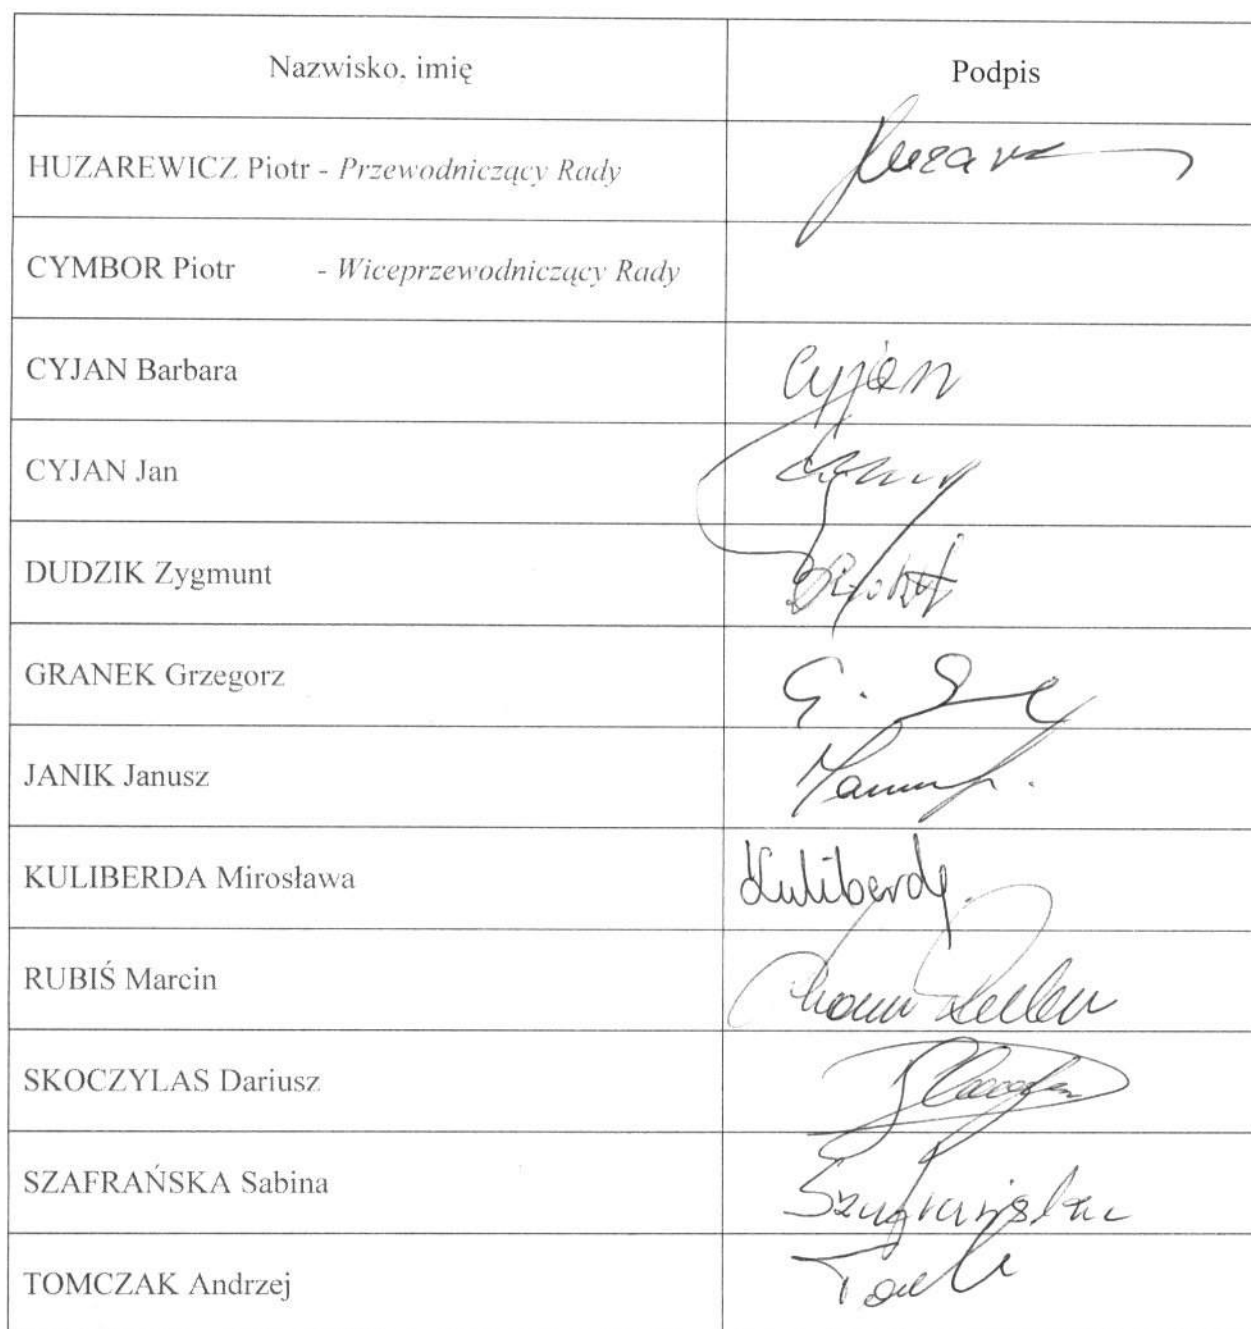 Nazwisko, imię Podpis
HUZAREWICZ Piotr - Przewodniczący Rady
CYMBOR Piotr - Wiceprzewodniczący Rady
CYJAN Barbara Cyjan
CYJAN Jan
DUDZIK Zygmunt
GRANEK Grzegorz
JANIK Janusz
KULIBERDA Mirosława Kuliberda
RUBIŚ Marcin
SKOCZYLAS Dariusz
SZAFRAŃSKA Sabina Szafrańska
TOMCZAK Andrzej